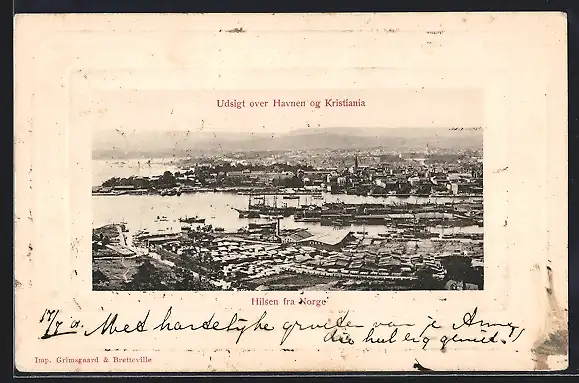 Udsigt over Havnen og Kristiania
Hilsen fra Norge
17/7 Met hartelyke groeten van je
die heel erg geniet.
Imp. Grimsgaard & Bretteville